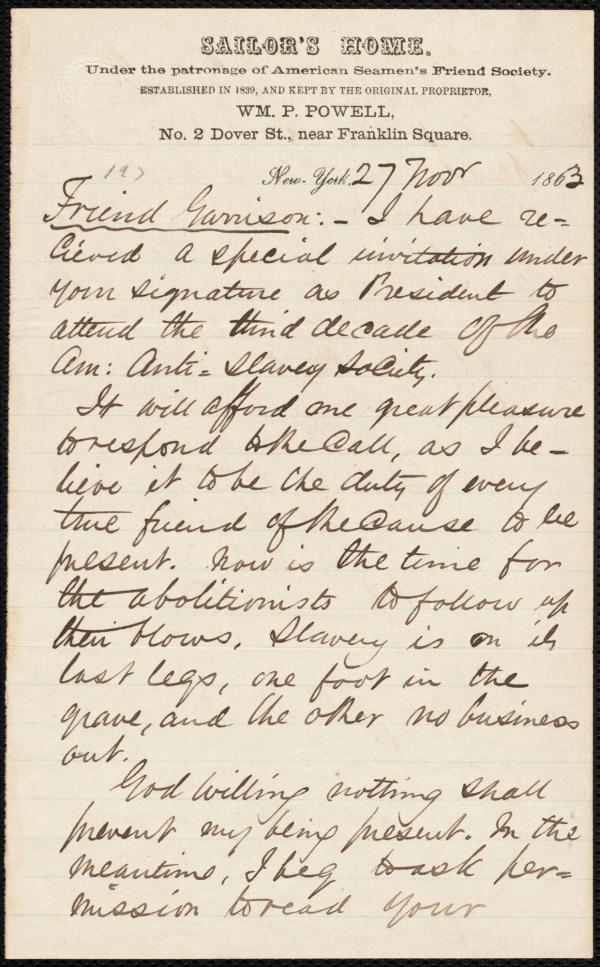 SAILOR'S HOME.
Under the patronage of American Seamen's Friend Society.
ESTABLISHED IN 1839, AND KEPT BY THE ORIGINAL PROPRIETOR,
WM. P. POWELL,
No. 2 Dover St., near Franklin Square.
New-York, 27 Novr 1863
Friend Garrison:- I have re=
cieved a special invitation under
your signature as President to
attend the third decade of the
Am: Anti=Slavery Society.
It will afford me great pleasure
to respond to the Call, as I be-
lieve it to be the duty of every
true friend of the Cause to be
present. Now is the time for
the abolitionists to follow up
their blows. Slavery is on its
last legs, one foot in the
grave, and the other no business
out.
God willing nothing shall
prevent my being present. In the
meantime, I beg to ask per=
mission to read your